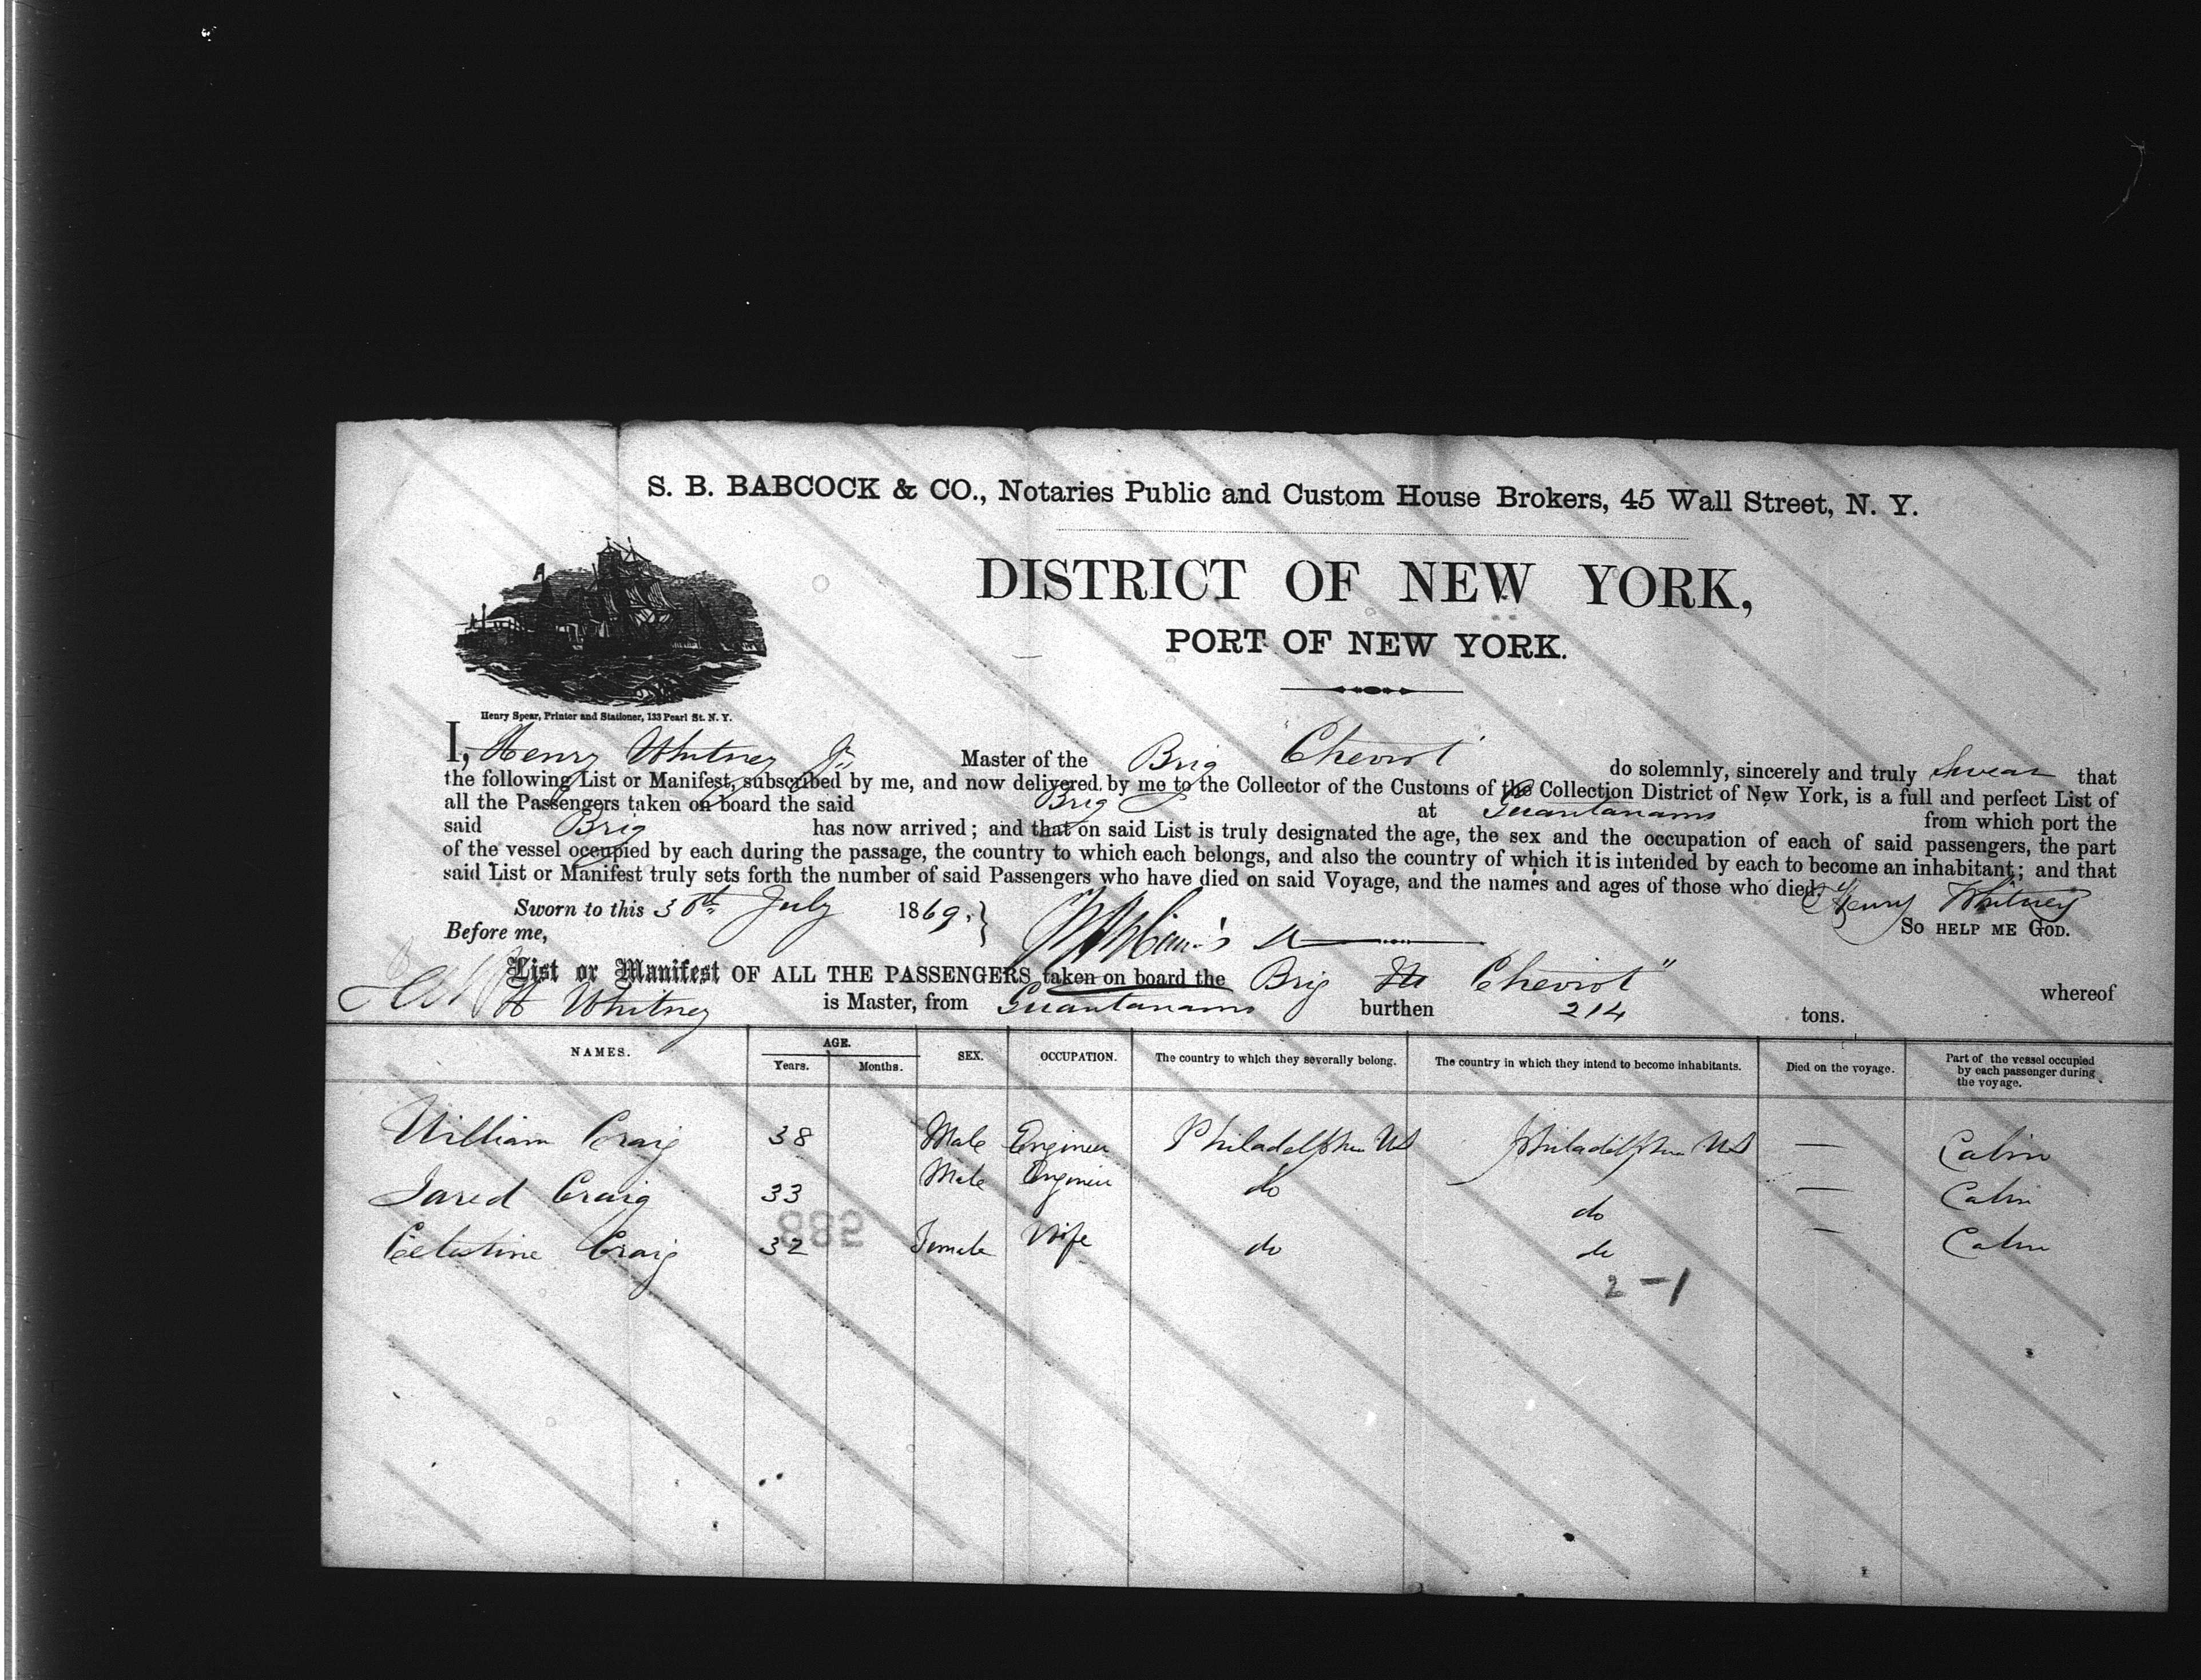 S. B. BABCOCK & CO., Notaries Public and Custom House Brokers, 45 Wall Street, N. Y.
DISTRICT OF NEW YORK,
PORT OF NEW YORK.
Henry Spear, Printer and Stationer, 133 Pearl St. N. Y.
I, Henry Whitney Jr Master of the Brig "Cheviot" do solemnly, sincerely and truly swear that
the following List or Manifest, subscribed by me, and now delivered by me to the Collector of the Customs of the Collection District of New York, is a full and perfect List of
all the Passengers taken on board the said Brig at Guantanamo from which port the
said Brig has now arrived; and that on said List is truly designated the age, the sex and the occupation of each of said passengers, the part
of the vessel occupied by each during the passage, the country to which each belongs, and also the country of which it is intended by each to become an inhabitant; and that
said List or Manifest truly sets forth the number of said Passengers who have died on said Voyage, and the names and ages of those who died.
Sworn to this 30th July 1869. Henry Whitney
Before me, SO HELP ME GOD.
List or Manifest OF ALL THE PASSENGERS taken on board the Brig Cheviot" whereof
H Whitney is Master, from Guantanamo burthen 214 tons.
NAMES. AGE. Years. Months. SEX. OCCUPATION. The country to which they severally belong. The country in which they intend to become inhabitants. Died on the voyage. Part of the vessel occupied by each passenger during the voyage.
William Craig 38 Male Engineer Philadelphia US Philadelphia US — Cabin
Jared Craig 33 Male Engineer do do — Cabin
885
Celestine Craig 32 Female Wife do do — Cabin
2-1